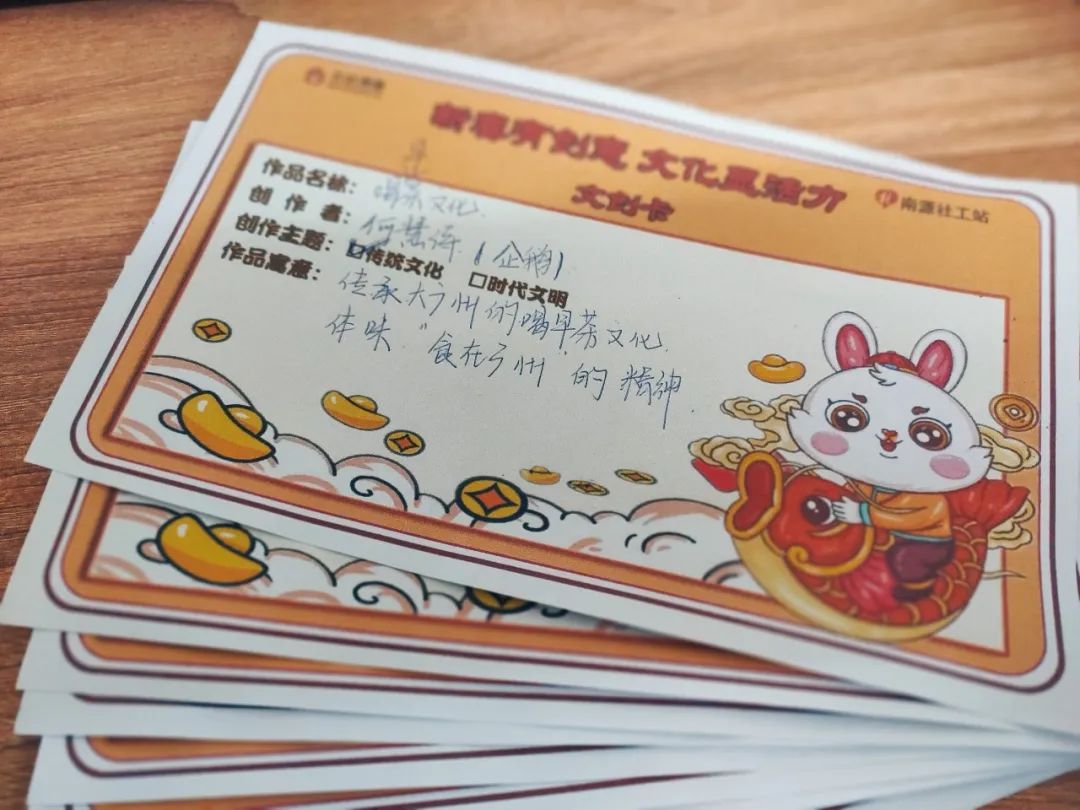 新春有创建 文化显活力
文创卡
南源社工站
作品名称: 喝早茶文化.
创 作 者: 何慧海 (企鹅)
创作主题: ☑传统文化 ☐时代文明
作品寓意: 传承大广州的喝早茶文化.
体味“食在广州”的精神.